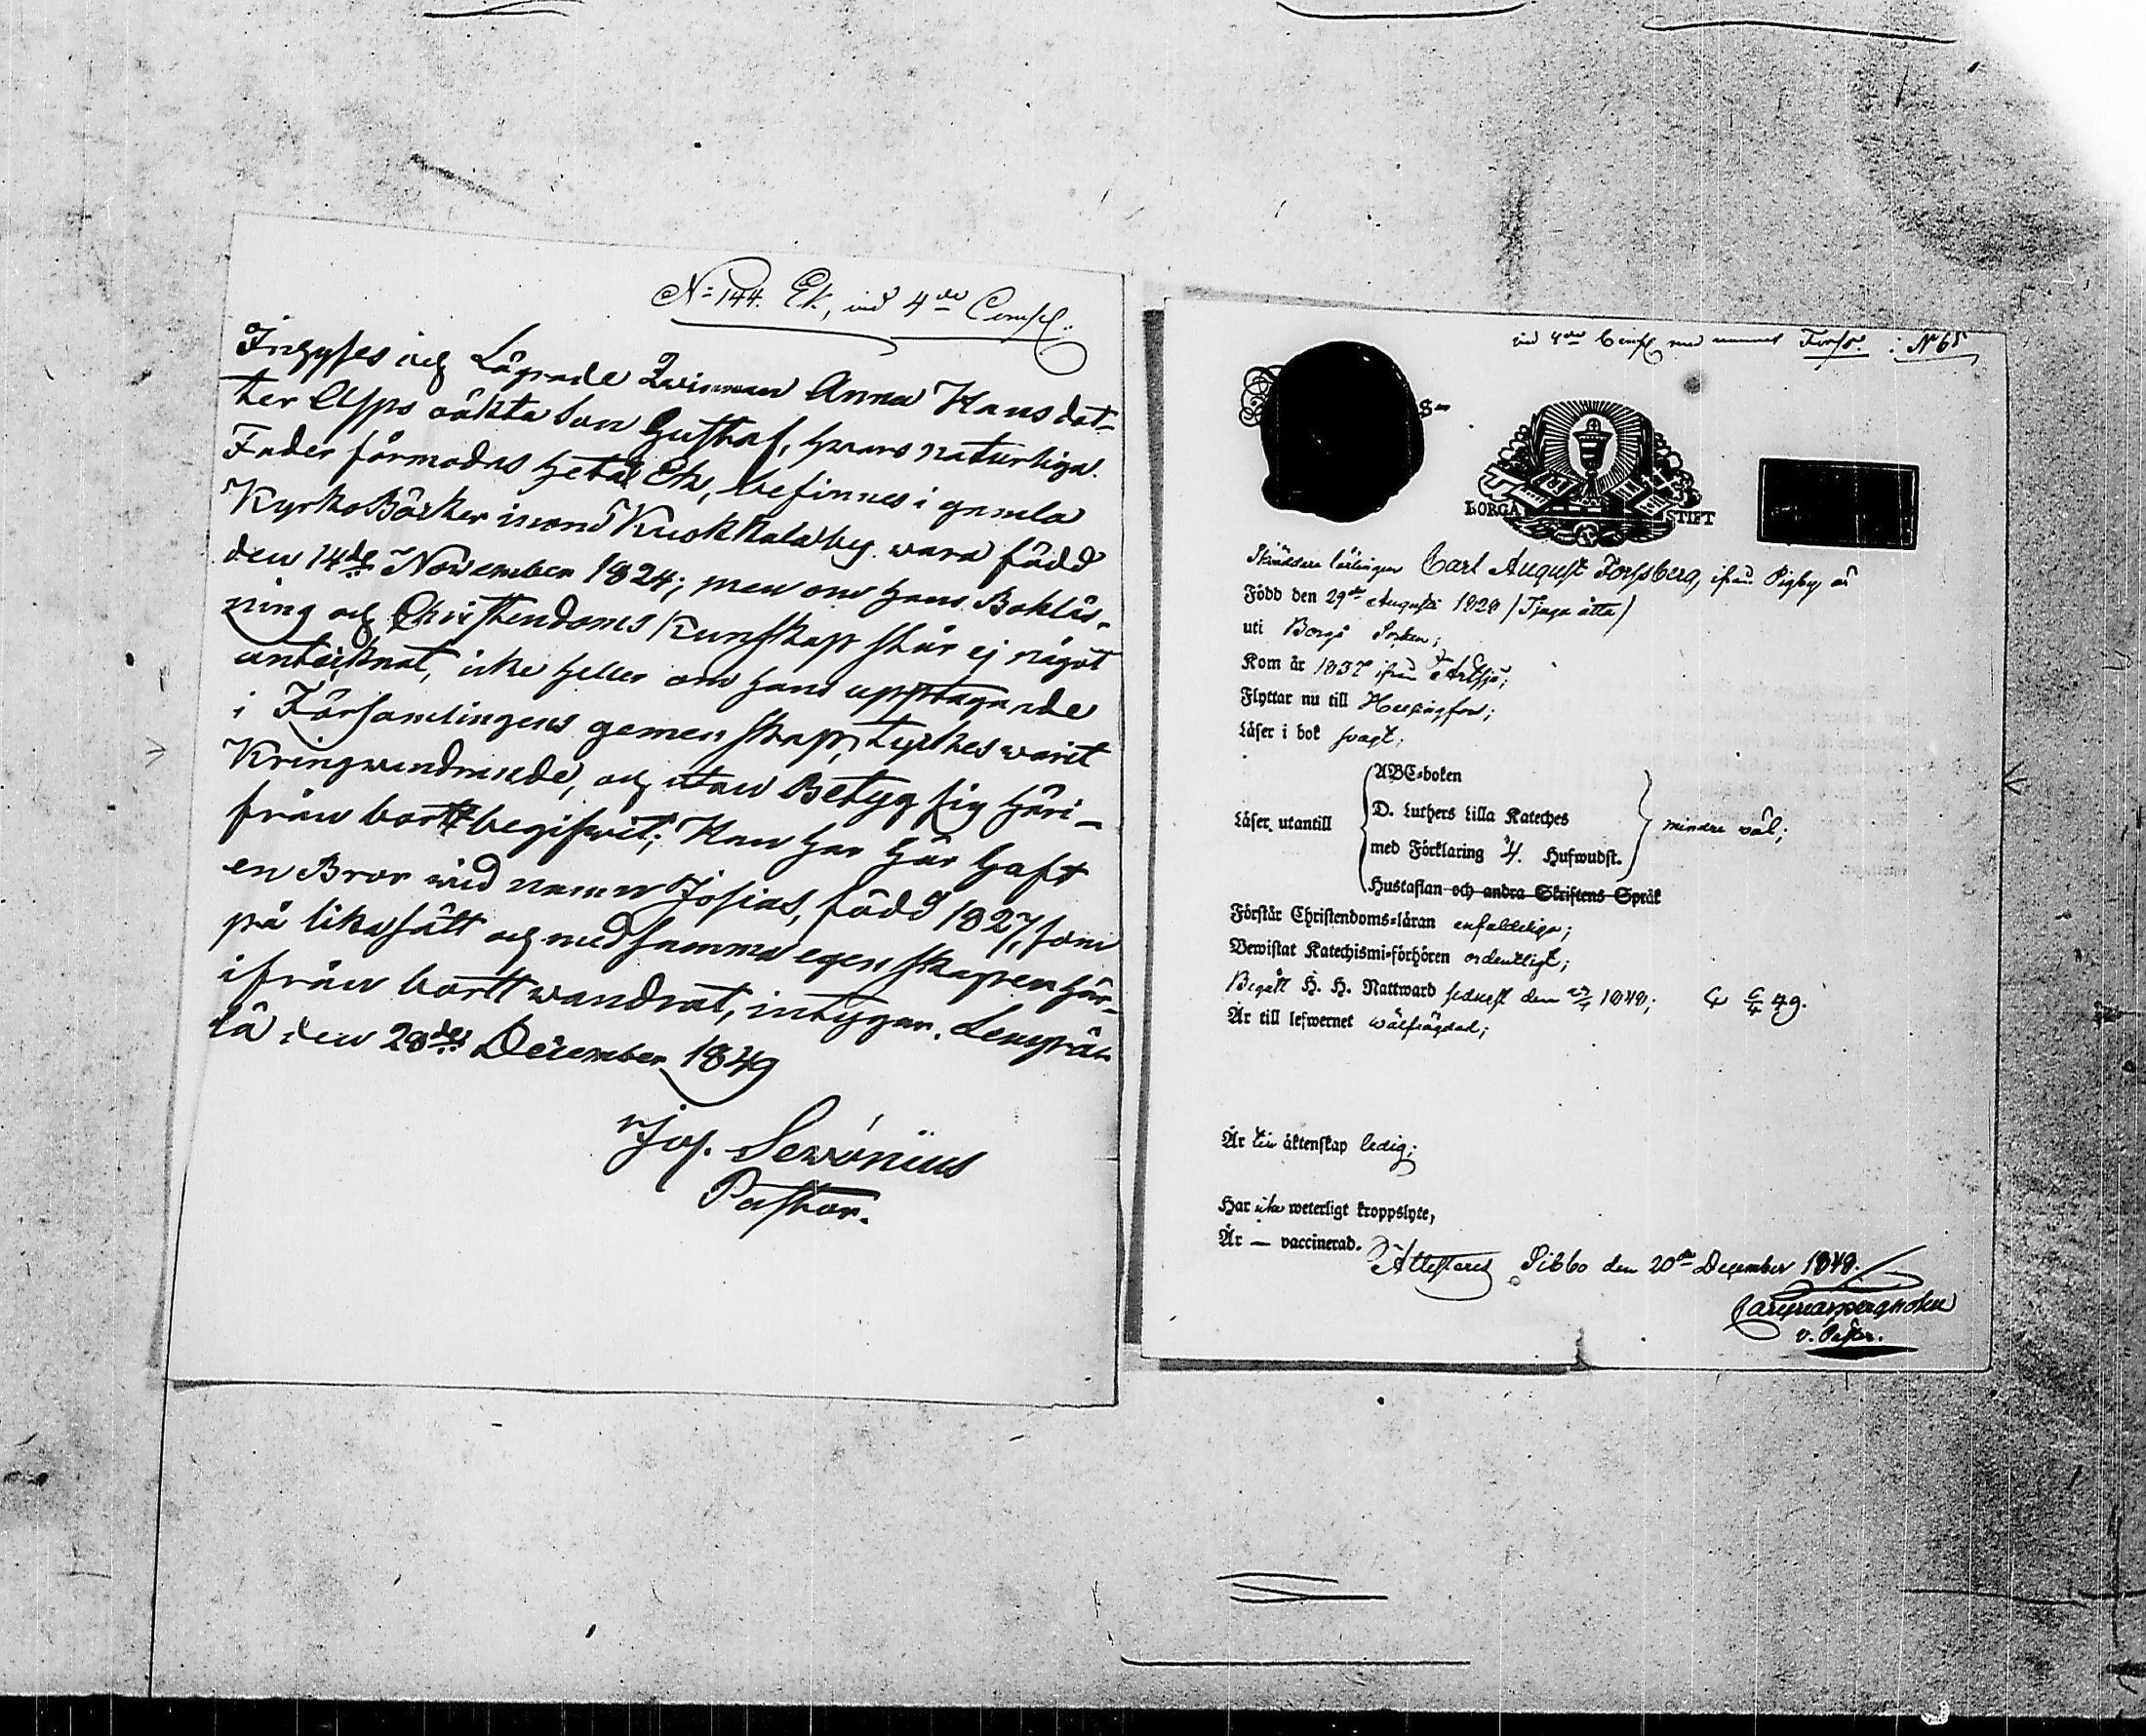 N=144. Ek, vid 4de Comp.:
Inhyses och Lägrade Qvinnan Anna Hansdot-
ter Asps oäkta Son Gustaf, hvars naturliga
Fader förmodas heta Ek, befinnes i gamla
KyrkoBöcker inom Kuskkalaby vara född
den 14de November 1824; men om hans Bokläs-
ning och Christendoms Kunskap står ej något
antecknat, icke heller om hans upptagande
i Församlingens gemenskap, tyckes varit
Kringvandrande, och utan Betyg sig häri-
från bortt begifwit; Han har här haft
en Bror vid namn Josias, född 1827, som
på lika sätt och med samma egenskaper här-
ifrån bortt wandrat, intygar. Lempää-
lä den 29de December 1849
Jos. Sewónius
Pastor.
vid 4de Comp med namnet Forss. : N 65
S-
BORGÅ STIFT
Skräddare lärlingen Carl August Forssberg, ifrån Pigby är
Född den 29de Augusti 1828 (Tjugu åtta)
uti Borgå Socken;
Kom år 1837 ifrån Artsjö;
Flyttar nu till Helsingfors;
Läser i bok svagt;
Läser utantill
ABC-boken
D. Luthers Lilla Kateches
med Förklaring 4. Hufwudst.
Hustaflan och andra Skriftens Språk
mindre väl;
Förstår Christendoms-läran enfaldeliga;
Bewistat Katechismi-förhören ordentligt;
Begått H. H. Nattward sednast den 1848; 49.
Är till lefwernet wälfrägdad;
Är till äktenskap ledig;
Har icke weterligt kroppslyte,
Är — vaccinerad.
Attesteras Sibbo den 20de December 1848.
v. Pastor.